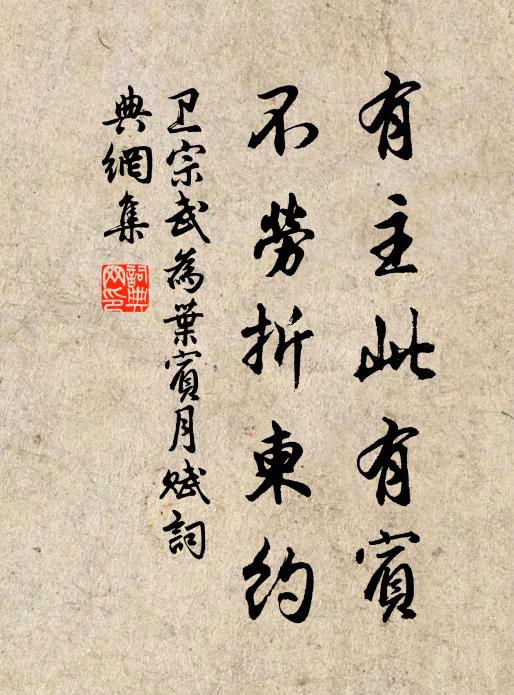 有主此有賓
不勞折東約
卫宗武為葉賓月賦詞
典網集
詞典網印